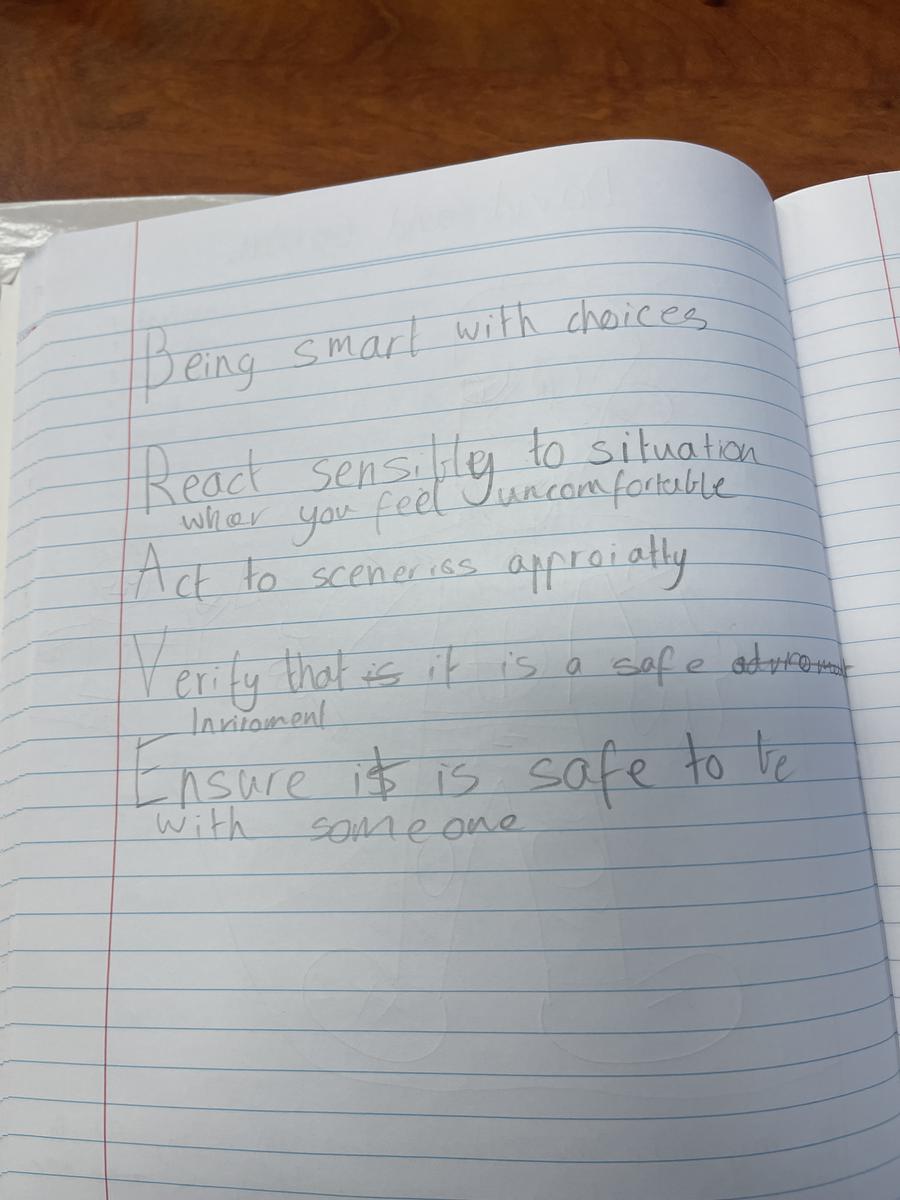 Being smart with choices
React sensibly to situation
when you feel uncomfortable
Act to sceneriss approiatly
Verify that is it is a safe
Inviroment
Ensure it is safe to be
with someone